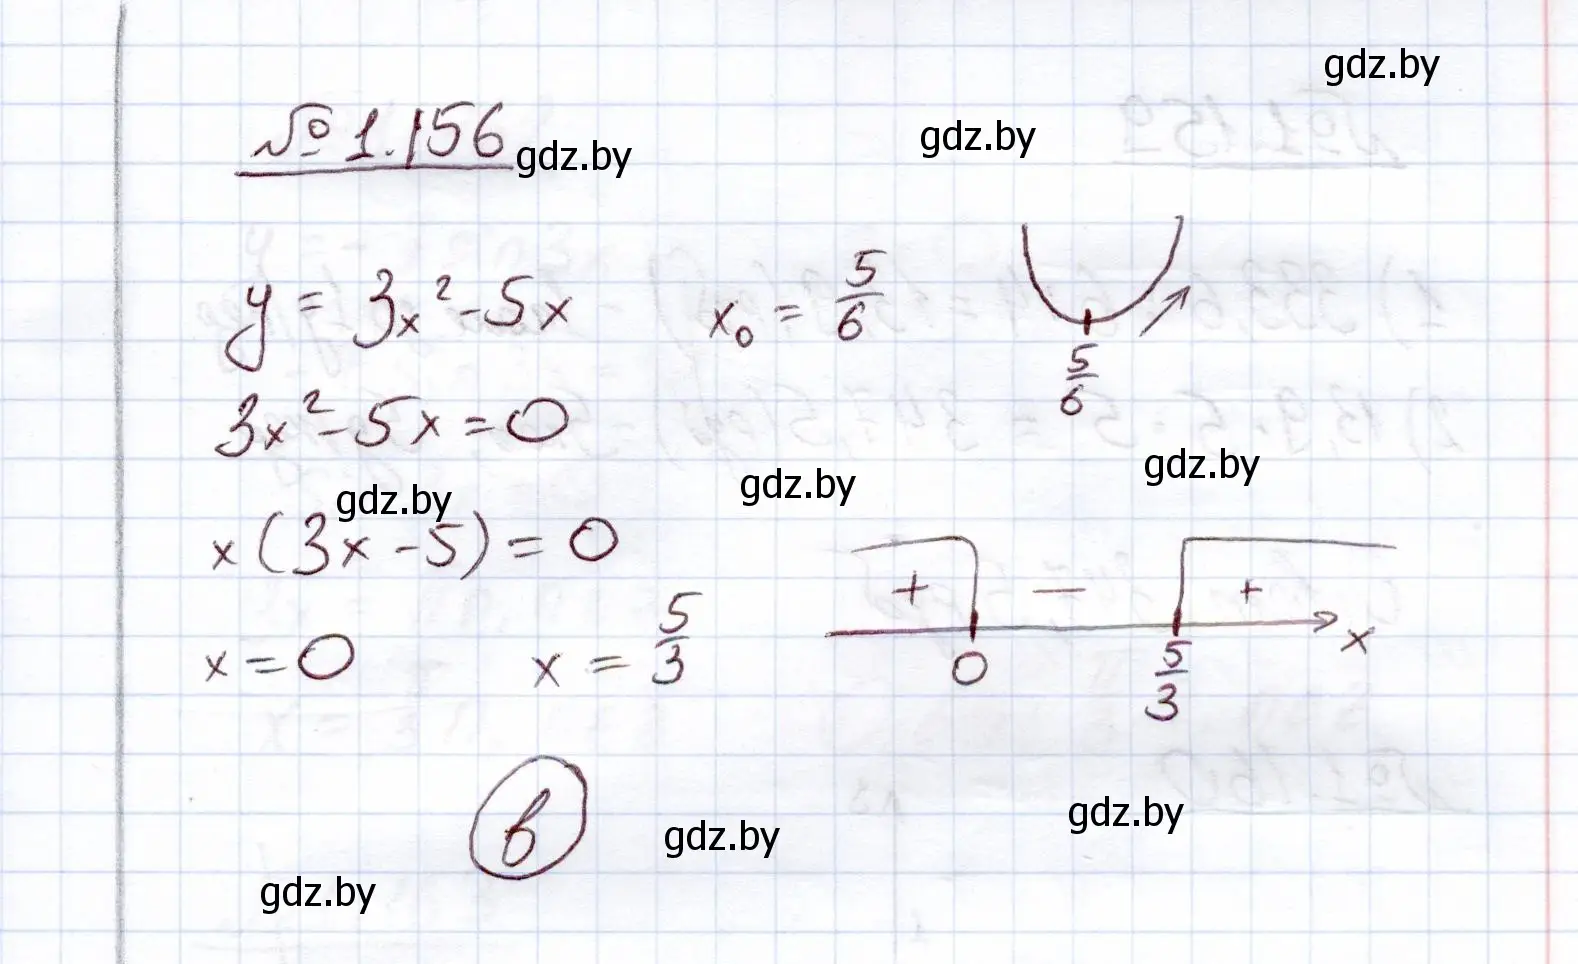 gdz.by
№ 1.156 gdz.by gdz.by
y = 3x² - 5x x₀ = 5/6
5/6
3x² - 5x = 0
gdz.by gdz.by gdz.by
x(3x - 5) = 0
+ — + x
x = 0 x = 5/3 0 5/3
в
gdz.by gdz.by
gdz.by